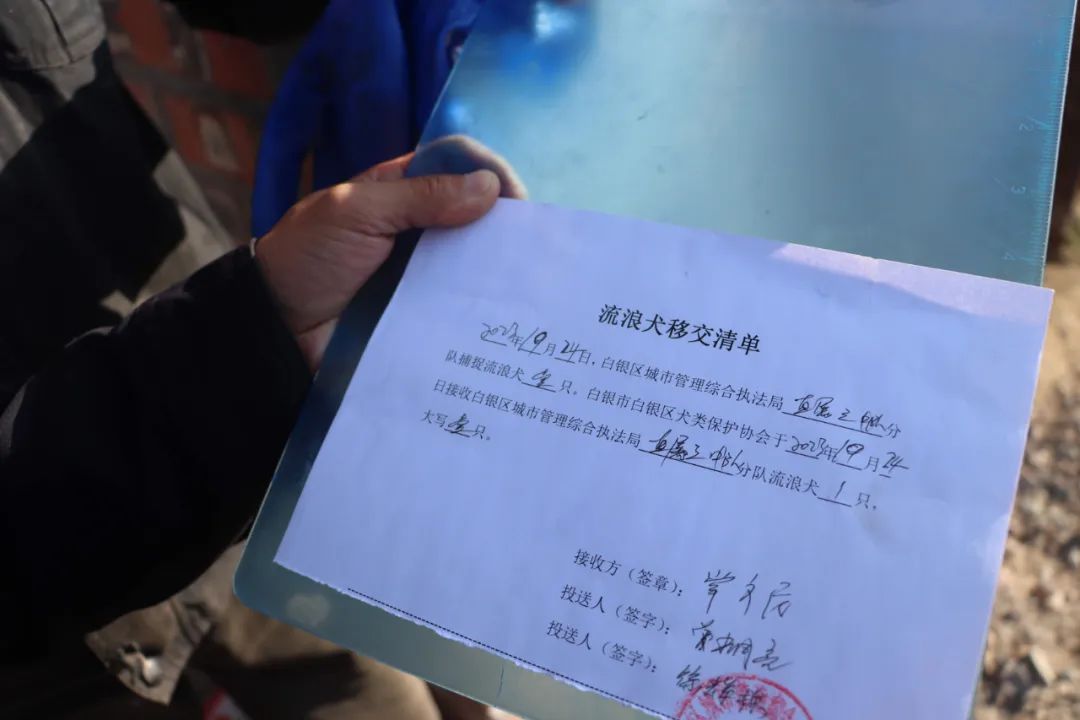 流浪犬移交清单
2023年10月24日，白银区城市管理综合执法局直属三中队分
队捕捉流浪犬壹只。白银市白银区犬类保护协会于2023年10月24
日接收白银区城市管理综合执法局直属三中队分队流浪犬1只。
大写壹只。
接收方（签章）：
投送人（签字）：
投送人（签字）：